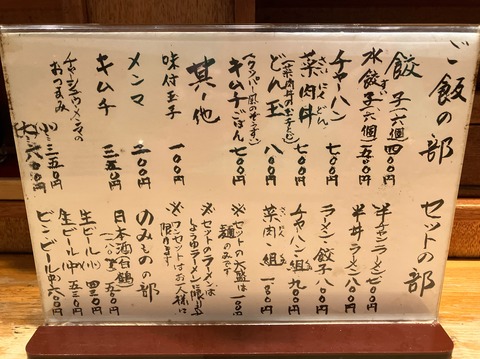 ご飯の部
餃子(六個)四〇〇円
水餃子(六個)五〇〇円
チャーハン 七〇〇円
菜肉丼 七〇〇円
どん玉 八〇〇円
キムチごはん 七〇〇円
其ノ他
味付玉子 一〇〇円
メンマ 二〇〇円
キムチ 三五〇円
チャーシューメンマの
おつまみ
小 三五〇円
大 六〇〇円
セットの部
半チャンラーメン 七〇〇円
半丼ラーメン 八〇〇円
ラーメン・餃子 八〇〇円
チャーハン組 九〇〇円
菜肉組 八〇〇円
※セットの大盛は一〇〇円
麺のみです
※セットのラーメンは
しょうゆラーメンに限ります
※ワンセットはお一人様に
限ります
のみものの部
日本酒白鶴
五〇〇円
生ビール(小) 四三〇円
生ビール(中) 五三〇円
ビンビール(中) 六〇〇円